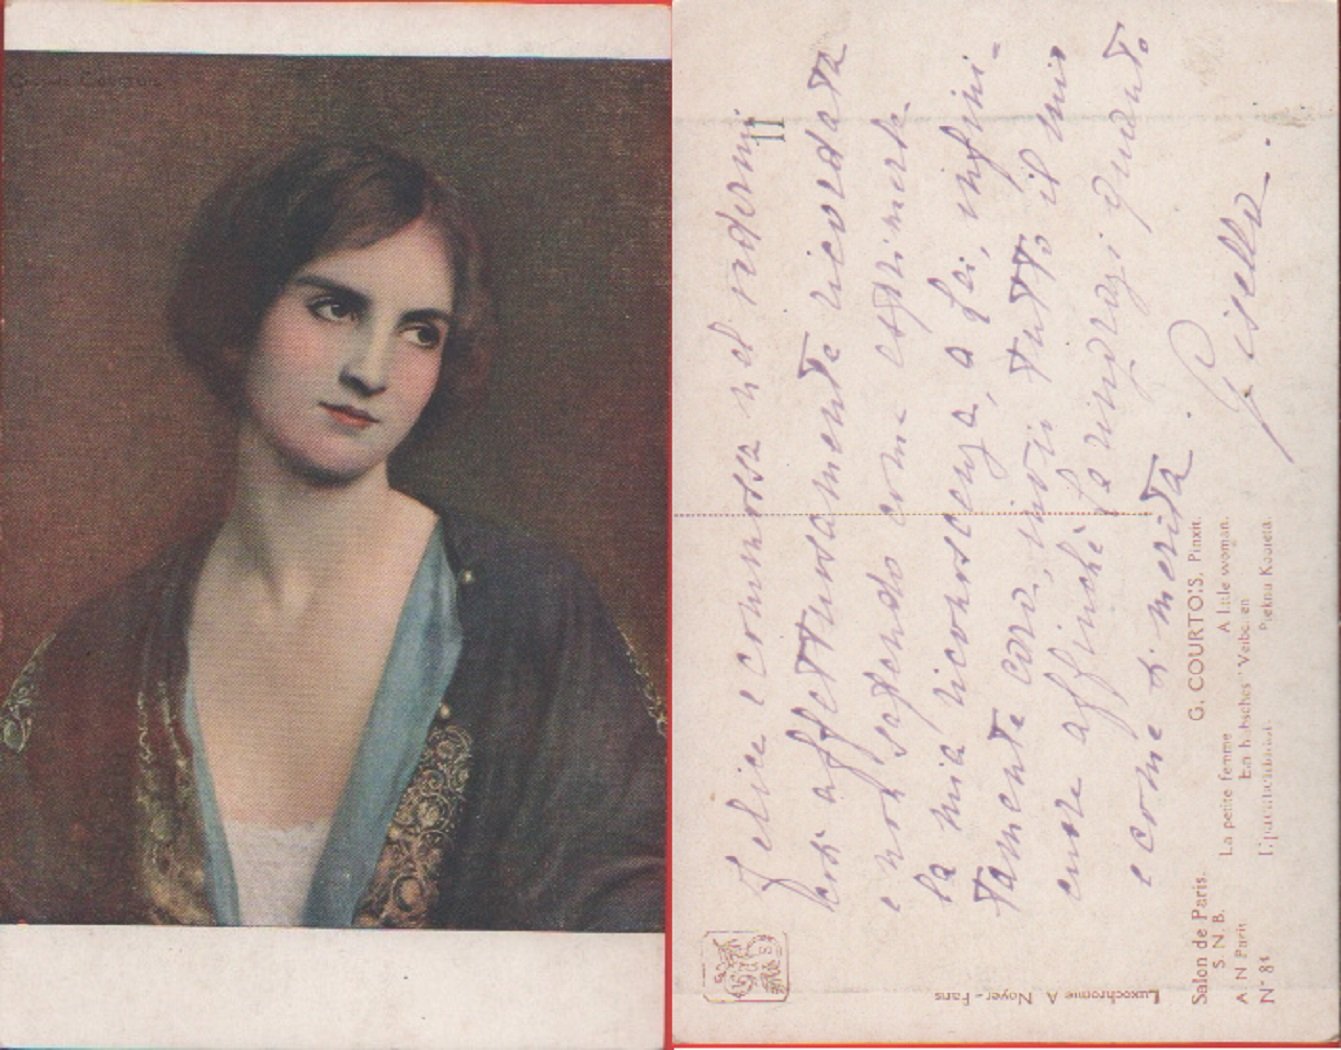 Felice e commossa nel vedermi
così affettuosamente ricordata
e non sapendo come esprimerle
la mia riconoscenza, a Lei, infini-
tamente caro, invii tutto il mio
cuore affinchè La ringrazi quanto
e come si merita.
Gisella.
11
Salon de Paris.
S. N. B.
A. N Paris
N° 84
G. COURTOIS, Pinxit.
La petite femme
A little woman.
Ein hubsches Veibchen
Piekna Kobieta.
Luxochrome A Noyer - Paris